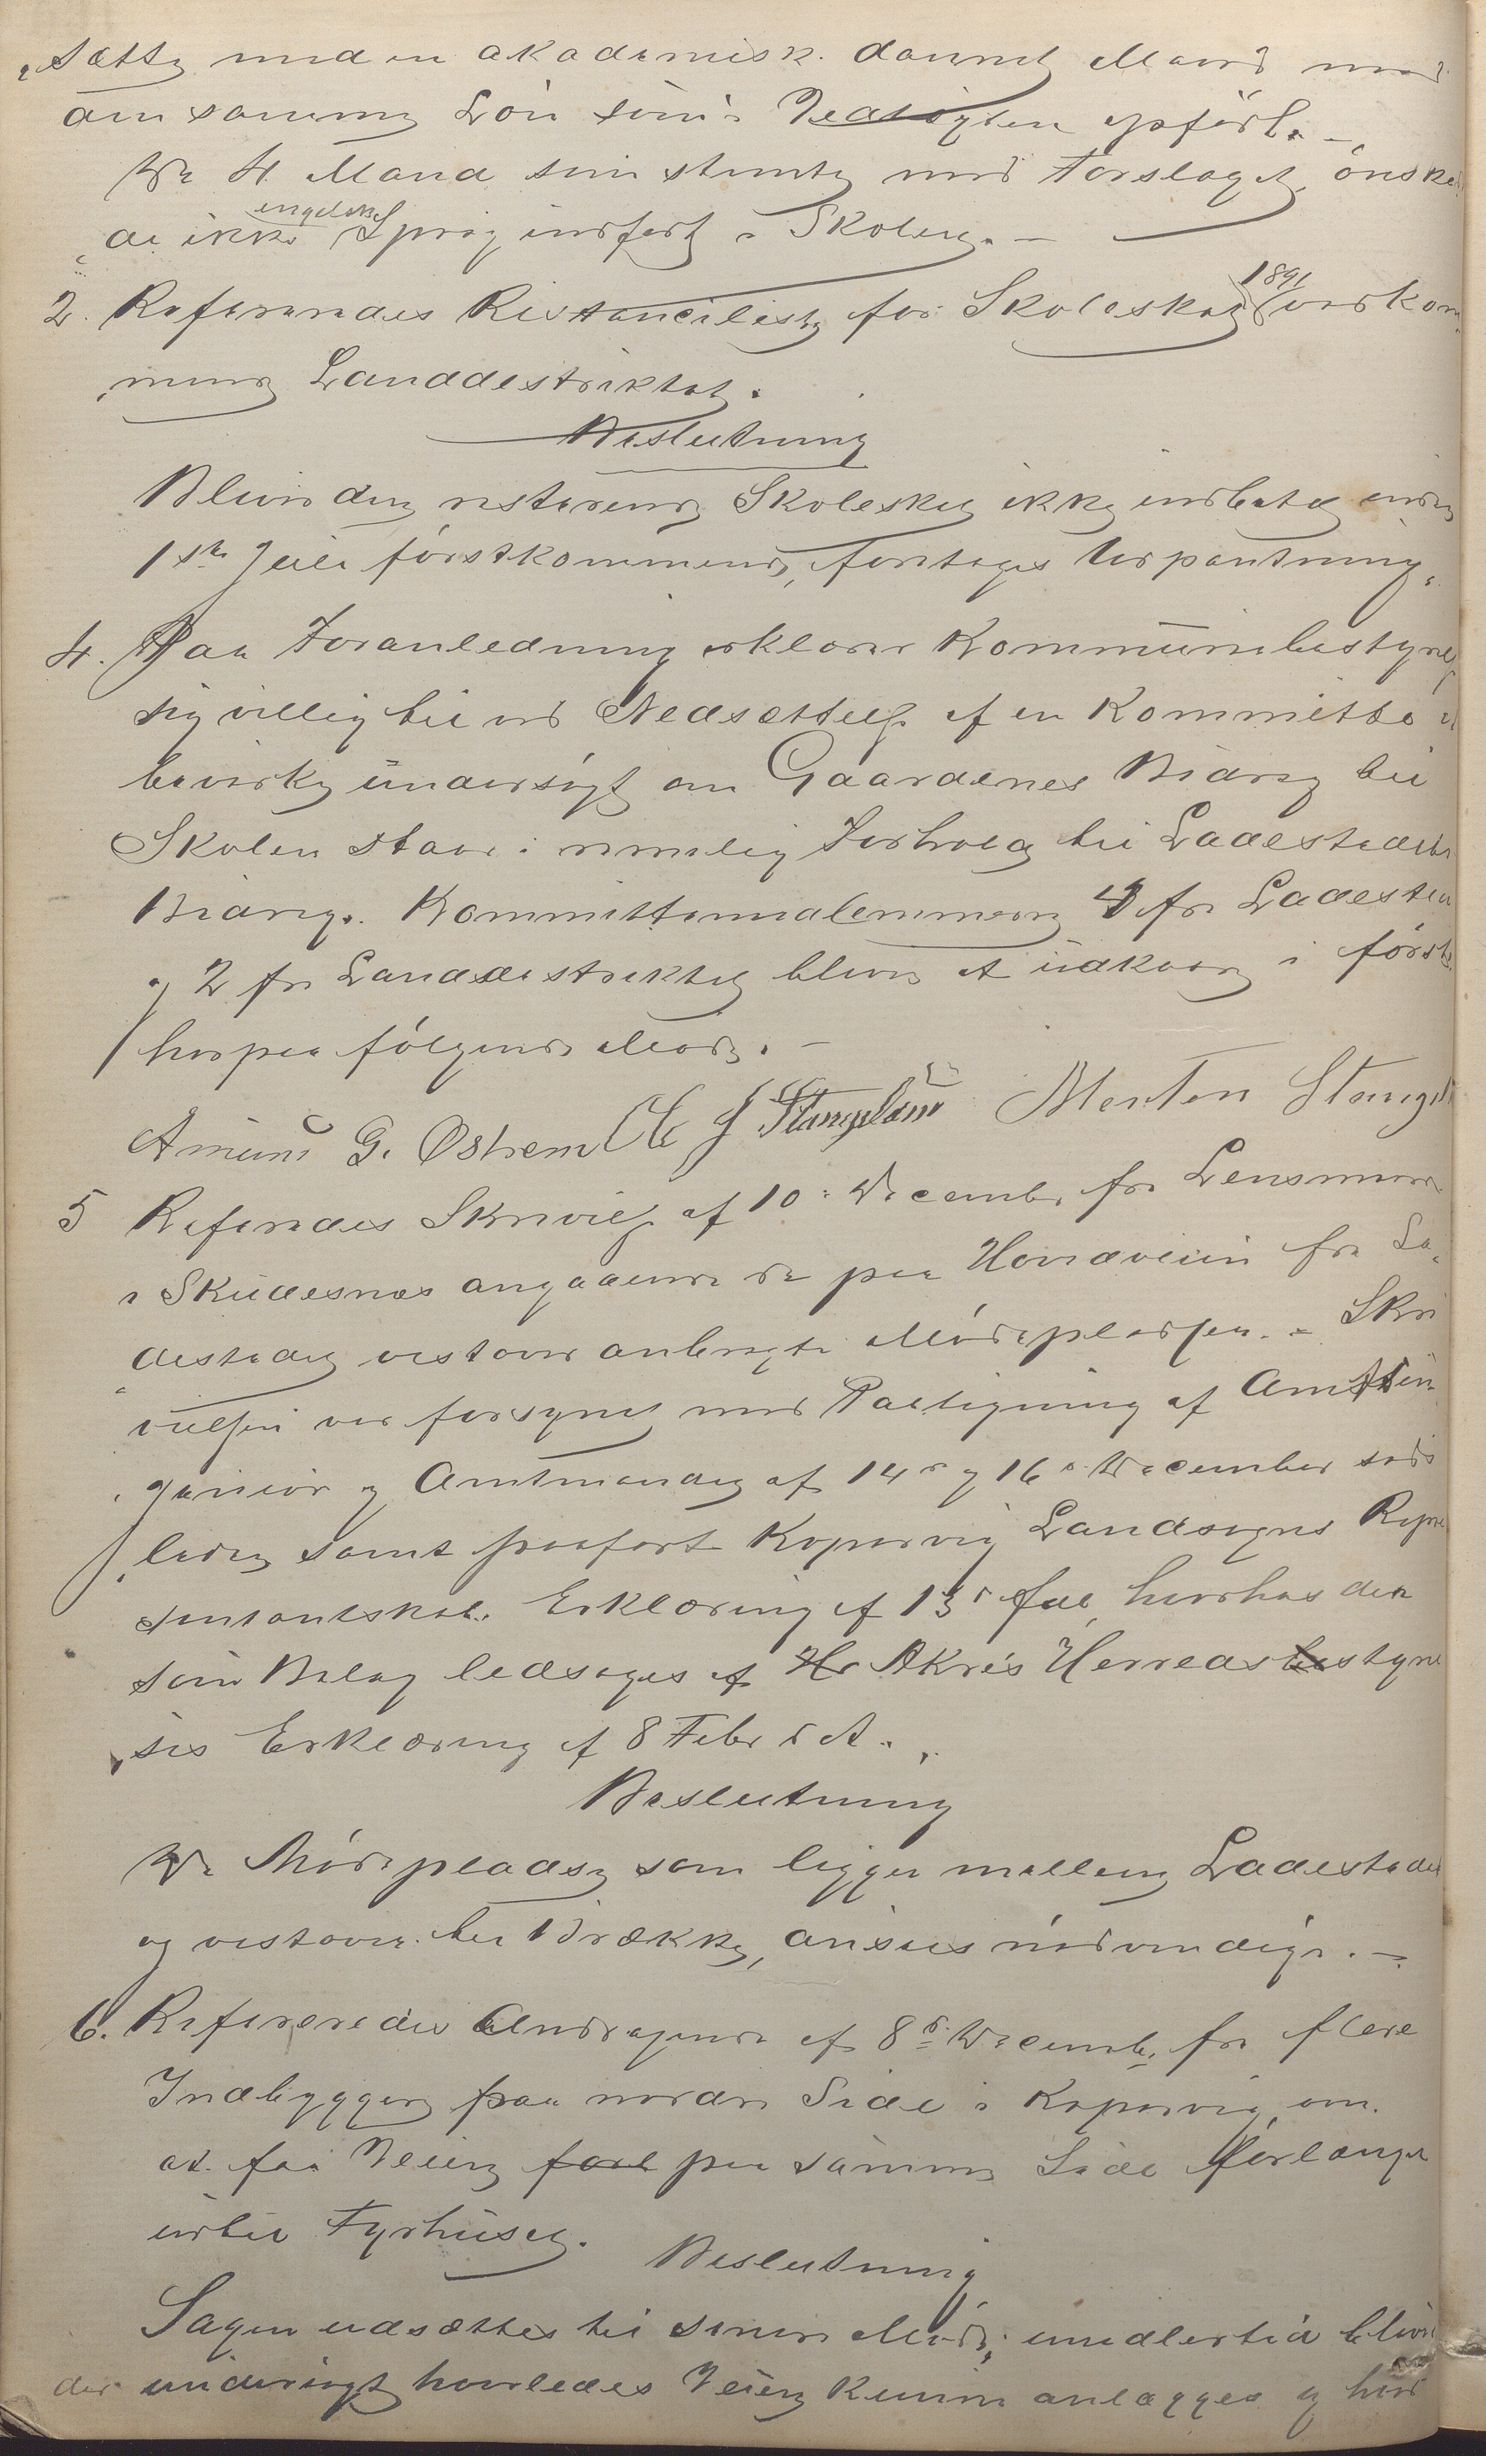 sætte med en akademisk dannet Mand med
om samme Løn som i Vedtægten opført. —
De 4 Mand som stemte mod Forslaget, ønske
de ikke engelske Sprog indført i Skolen. —
2. Refereredes Restanceliste for Skoleskat 1891 vedkom
mende Landdestriktet.
Beslutning
Bliver den resterende Skoleskat ikke indbetalt inden
1ste Juli førstkommende, foretages Udpantning.
4. Paa Foranledning erklærer Kommunebestyrels
sig villig til ved Nedsættelse af en Kommitte at
bevirke undersøgt om Gaardenes Bidrag til
Skolen staar i rimelig Forhold til Ladestedets
Bidrag. Kommittemedlemmerne 3 fra Ladested
og 2 fra Landdestriktet bliver at udkaare i først
herpaa følgende Møde. —
Amund G. Østrem O J Stangeland Morten Stangel
5 Refereredes Skrivelse af 10de December fra Lensmand
i Skudesnes angaaende de paa Hovedveien fra La
destedet vestover anbragte Mødepladse. – Skri
velsen var forsynet med Paategning af Amtsin
geniør og Amtmanden af 14de og 16de December sids
leden samt paaført Kopervig Landsogns Repræ
sentantskab. Erklæring af 13de Feb, hvorhos den
som Bilag ledsages af Hr Akres Herredsbestyrel
ses Erklæring af 8 Febr d A.
Beslutning
De Mødepladse som ligger mellem Ladestedet
og vestover til Brække, ansees nødvendige. —
6. Refereredes Andragende af 8de December fra flere
Indbyggere paa nordre Side i Kopervig om
at faa Veien forl paa samme Side forlænget
ud til Fyrhuset.
Beslutning
Sagen udsættes til senere Møde, imidlertid bliver
der undersøgt hvorledes Veien kunne anlægges og hvad